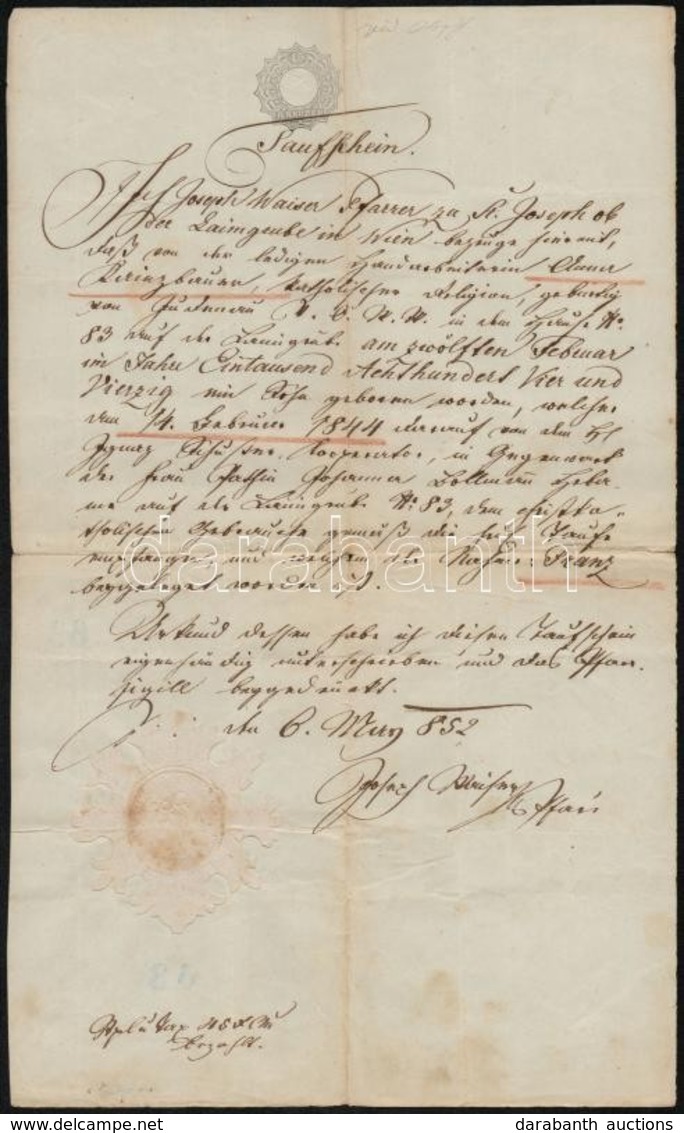 Taufschein.
Ich Joseph Waiser Pfarrer zu St. Joseph ob
der Laimgrube in Wien bezeuge hiemit,
daß von der ledigen Handarbeiterin Anna
Kainzbauer, katholischer Religion, gebürtig
von Judenau V. O. W. W. in dem Hause No.
83 auf der Laimgrube am zwölften Februar
im Jahre Eintausend Achthundert Vier und
Vierzig ein Sohn geboren worden, welcher
den 14. Februar 1844 darauf von dem H
Ignaz Schuster, Kooperator, in Gegenwart
der Frau Pathin Johanna Bollmann Heba-
me auf der Laimgrube No. 83, dem christka-
tholischen Gebrauche gemäß die heil. Taufe
empfangen, und welchem der Name: Franz
beygeleget worden ist.
Urkund dessen habe ich diesen Taufschein
eigenhändig unterschrieben und das Pfarr-
sigill beygedruckt.
den 6. May 852
Joseph Waiser
Pfarr
Tax 48 x CM
bezahlt.
darabanth
www.delcampe.net
darabanth auctions